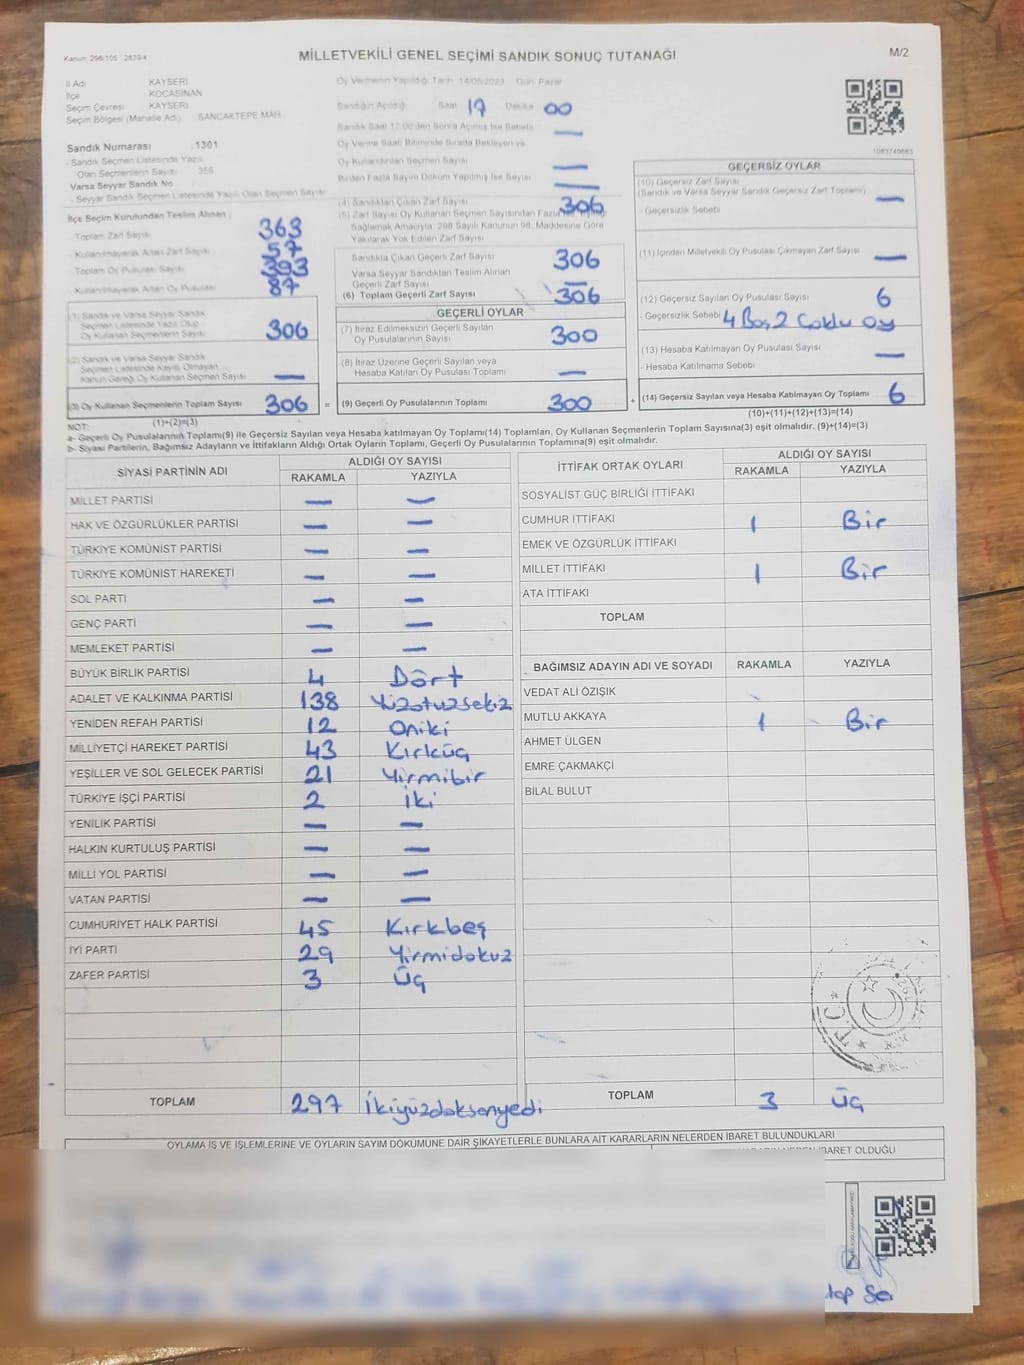 Kanun: 298/105 2839/4
MİLLETVEKİLİ GENEL SEÇİMİ SANDIK SONUÇ TUTANAĞI
M/2
İl Adı KAYSERİ
İlçe KOCASİNAN
Seçim Çevresi KAYSERİ
Seçim Bölgesi (Mahalle Adı) SANCAKTEPE MAH.
Sandık Numarası :1301
- Sandık Seçmen Listesinde Yazılı
Olan Seçmenlerin Sayısı 358
Varsa Seyyar Sandık No
- Seyyar Sandık Seçmen Listesinde Yazılı Olan Seçmen Sayısı
İlçe Seçim Kurulundan Teslim Alınan ;
- Toplam Zarf Sayısı 363
- Kullanılmayarak Artan Zarf Sayısı 57
Toplam Oy Pusulası Sayısı 393
- Kullanılmayarak Artan Oy Pusulası 87
(1) Sandık ve Varsa Seyyar Sandık
Seçmen Listesinde Yazılı Olup
Oy Kullanan Seçmenlerin Sayısı 306
(2) Sandık ve Varsa Seyyar Sandık
Seçmen Listesinde Kayıtlı Olmayan
Kanun Gereği Oy Kullanan Seçmen Sayısı —
(3) Oy Kullanan Seçmenlerin Toplam Sayısı 306 =
(1)+(2)=(3)
Oy Vermenin Yapıldığı Tarih :14/05/2023 Gün: Pazar
Sandığın Açıldığı Saat 17 Dakika 00
Sandık Saat 17:00'den Sonra Açılmış İse Sebebi —
Oy Verme Saati Bitiminde Sırada Bekleyen ve
Oy Kullandırılan Seçmen Sayısı —
Birden Fazla Sayım Döküm Yapılmış İse Sayısı —
(4) Sandıktan Çıkan Zarf Sayısı 306
(5) Zarf Sayısı Oy Kullanan Seçmen Sayısından Fazla
Sağlamak Amacıyla, 298 Sayılı Kanunun 98. Maddesine Göre
Yakılarak Yok Edilen Zarf Sayısı
Sandıkta Çıkan Geçerli Zarf Sayısı 306
Varsa Seyyar Sandıktan Teslim Alınan
Geçerli Zarf Sayısı —
(6) Toplam Geçerli Zarf Sayısı 306
GEÇERLİ OYLAR
(7) İtiraz Edilmeksizin Geçerli Sayılan
Oy Pusulalarının Sayısı 300
(8) İtiraz Üzerine Geçerli Sayılan veya
Hesaba Katılan Oy Pusulası Toplamı —
(9) Geçerli Oy Pusulalarının Toplamı 300 +
1083740663
GEÇERSİZ OYLAR
(10) Geçersiz Zarf Sayısı
(Sandık ve Varsa Seyyar Sandık Geçersiz Zarf Toplamı) —
- Geçersizlik Sebebi
(11) İçinden Milletvekili Oy Pusulası Çıkmayan Zarf Sayısı —
(12) Geçersiz Sayılan Oy Pusulası Sayısı 6
- Geçersizlik Sebebi 4 Boş, 2 Çoklu oy
(13) Hesaba Katılmayan Oy Pusulası Sayısı —
- Hesaba Katılmama Sebebi
(14) Geçersiz Sayılan veya Hesaba Katılmayan Oy Toplamı 6
(10)+(11)+(12)+(13)=(14)
NOT:
a- Geçerli Oy Pusulalarının Toplamı(9) ile Geçersiz Sayılan veya Hesaba katılmayan Oy Toplamı(14) Toplamları, Oy Kullanan Seçmenlerin Toplam Sayısına(3) eşit olmalıdır. (9)+(14)=(3)
b- Siyasi Partilerin, Bağımsız Adayların ve İttifakların Aldığı Ortak Oyların Toplamı, Geçerli Oy Pusulalarının Toplamına(9) eşit olmalıdır.
SİYASİ PARTİNİN ADI ALDIĞI OY SAYISI
RAKAMLA YAZIYLA
MİLLET PARTİSİ — —
HAK VE ÖZGÜRLÜKLER PARTİSİ — —
TÜRKİYE KOMÜNİST PARTİSİ — —
TÜRKİYE KOMÜNİST HAREKETİ — —
SOL PARTİ — —
GENÇ PARTİ — —
MEMLEKET PARTİSİ — —
BÜYÜK BİRLİK PARTİSİ 4 Dört
ADALET VE KALKINMA PARTİSİ 138 Yüzotuzsekiz
YENİDEN REFAH PARTİSİ 12 Oniki
MİLLİYETÇİ HAREKET PARTİSİ 43 Kırküç
YEŞİLLER VE SOL GELECEK PARTİSİ 21 Yirmibir
TÜRKİYE İŞÇİ PARTİSİ 2 İki
YENİLİK PARTİSİ — —
HALKIN KURTULUŞ PARTİSİ — —
MİLLİ YOL PARTİSİ — —
VATAN PARTİSİ — —
CUMHURİYET HALK PARTİSİ 45 Kırkbeş
İYİ PARTİ 29 Yirmidokuz
ZAFER PARTİSİ 3 Üç
TOPLAM 297 İkiyüzdoksanyedi
İTTİFAK ORTAK OYLARI ALDIĞI OY SAYISI
RAKAMLA YAZIYLA
SOSYALİST GÜÇ BİRLİĞİ İTTİFAKI
CUMHUR İTTİFAKI 1 Bir
EMEK VE ÖZGÜRLÜK İTTİFAKI
MİLLET İTTİFAKI 1 Bir
ATA İTTİFAKI
TOPLAM
BAĞIMSIZ ADAYIN ADI VE SOYADI RAKAMLA YAZIYLA
VEDAT ALİ ÖZIŞIK
MUTLU AKKAYA 1 Bir
AHMET ÜLGEN
EMRE ÇAKMAKÇİ
BİLAL BULUT
T.C.
TOPLAM 3 Üç
OYLAMA İŞ VE İŞLEMLERİNE VE OYLARIN SAYIM DÖKÜMÜNE DAİR ŞİKAYETLERLE BUNLARA AİT KARARLARIN NELERDEN İBARET BULUNDUKLARI
İBARET OLDUĞU